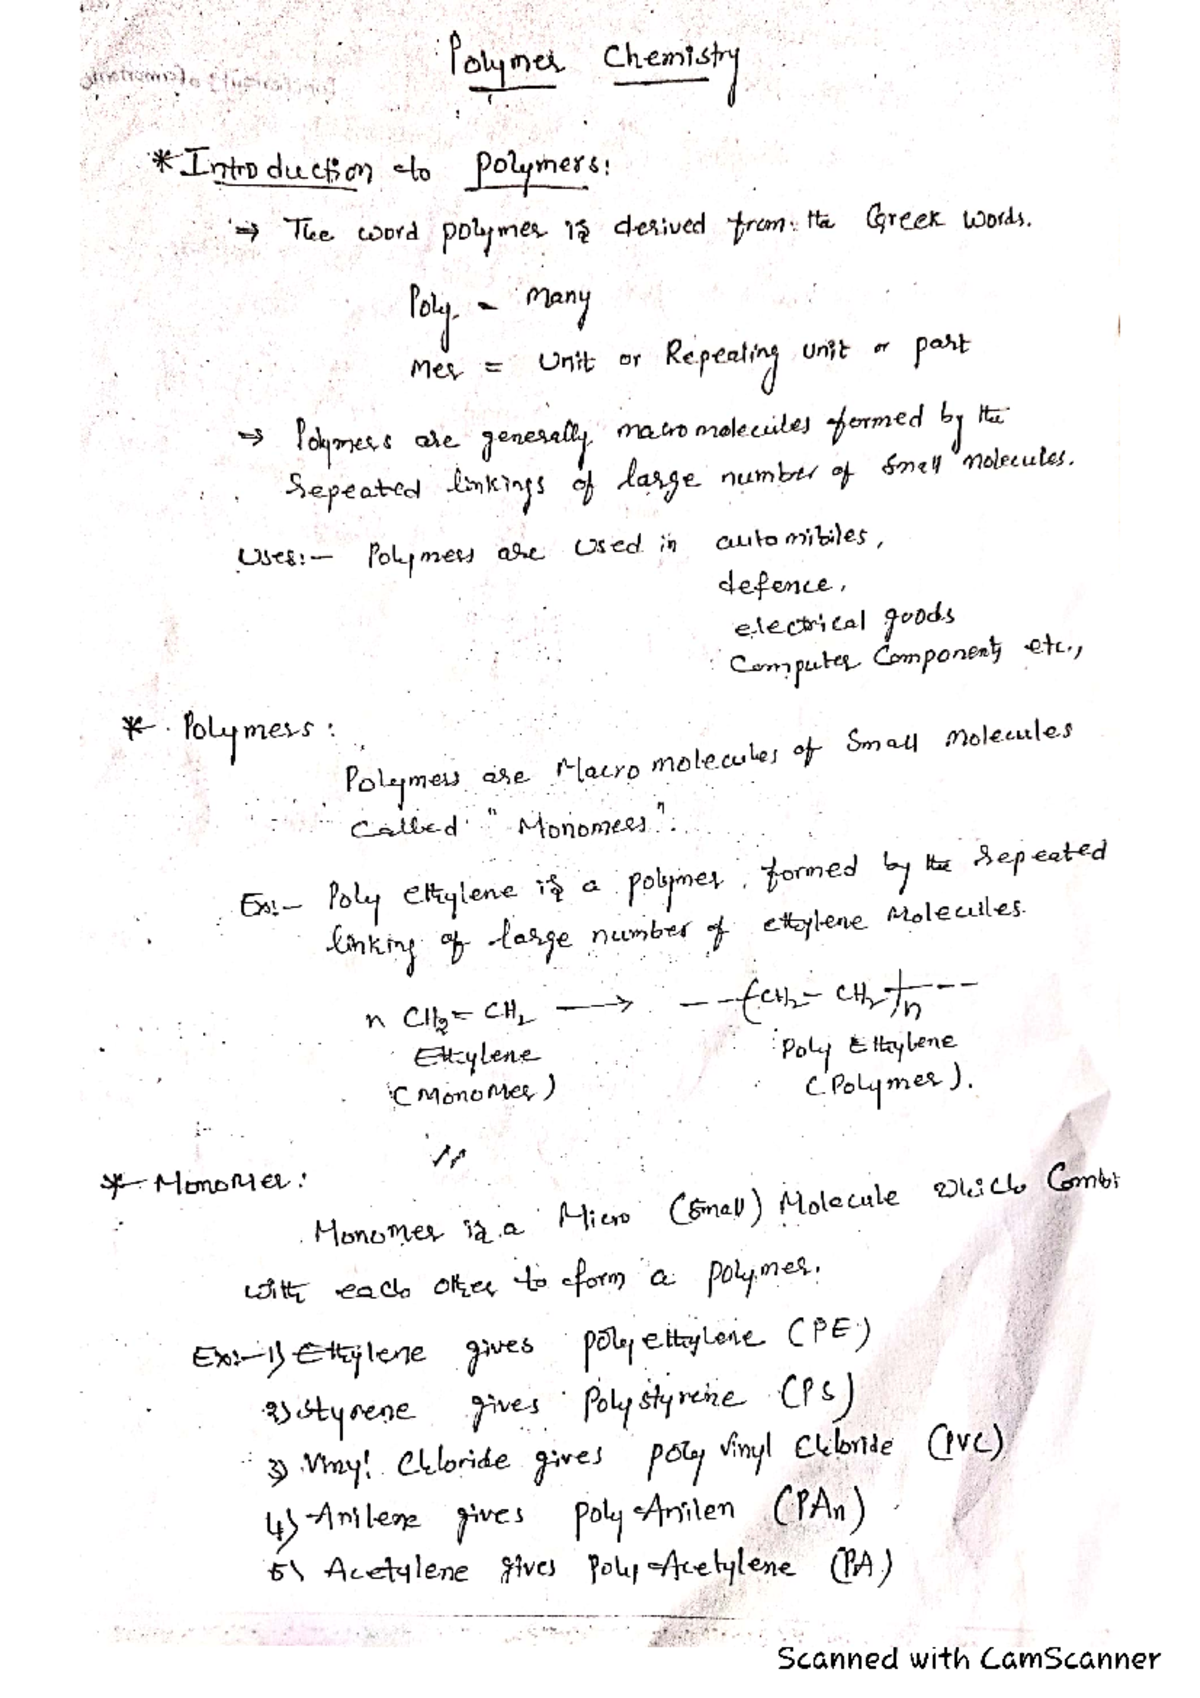 Polymer Chemistry
* Introduction to polymers:
⇒ The word polymer is derived from the Greek words.
Poly - many
mer = Unit or Repeating unit or part
⇒ Polymers are generally macromolecules formed by the
repeated linkings of large number of small molecules.
Uses:- Polymers are used in automibiles,
defence,
electrical goods
Computer Components etc.,
* Polymers:
Polymers are Macromolecules of Small Molecules
Called "Monomers".
Ex:- Poly ethylene is a polymer, formed by the repeated
linking of large number of ethylene Molecules.
n CH2=CH2 ⟶ --(CH2-CH2)n---
Ethylene Poly Ethylene
(Monomer) (Polymer).
* Monomer:
Monomer is a Micro (Small) Molecule which Combi
with each other to form a polymer.
Ex:-1) Ethylene gives polyethylene (PE)
2) styrene gives Polystyrene (PS)
3) Vinyl Chloride gives poly vinyl chloride (PVC)
4) Anilene gives poly-Anilen (PAn)
5) Acetylene gives Poly-Acetylene (PA)
Scanned with CamScanner